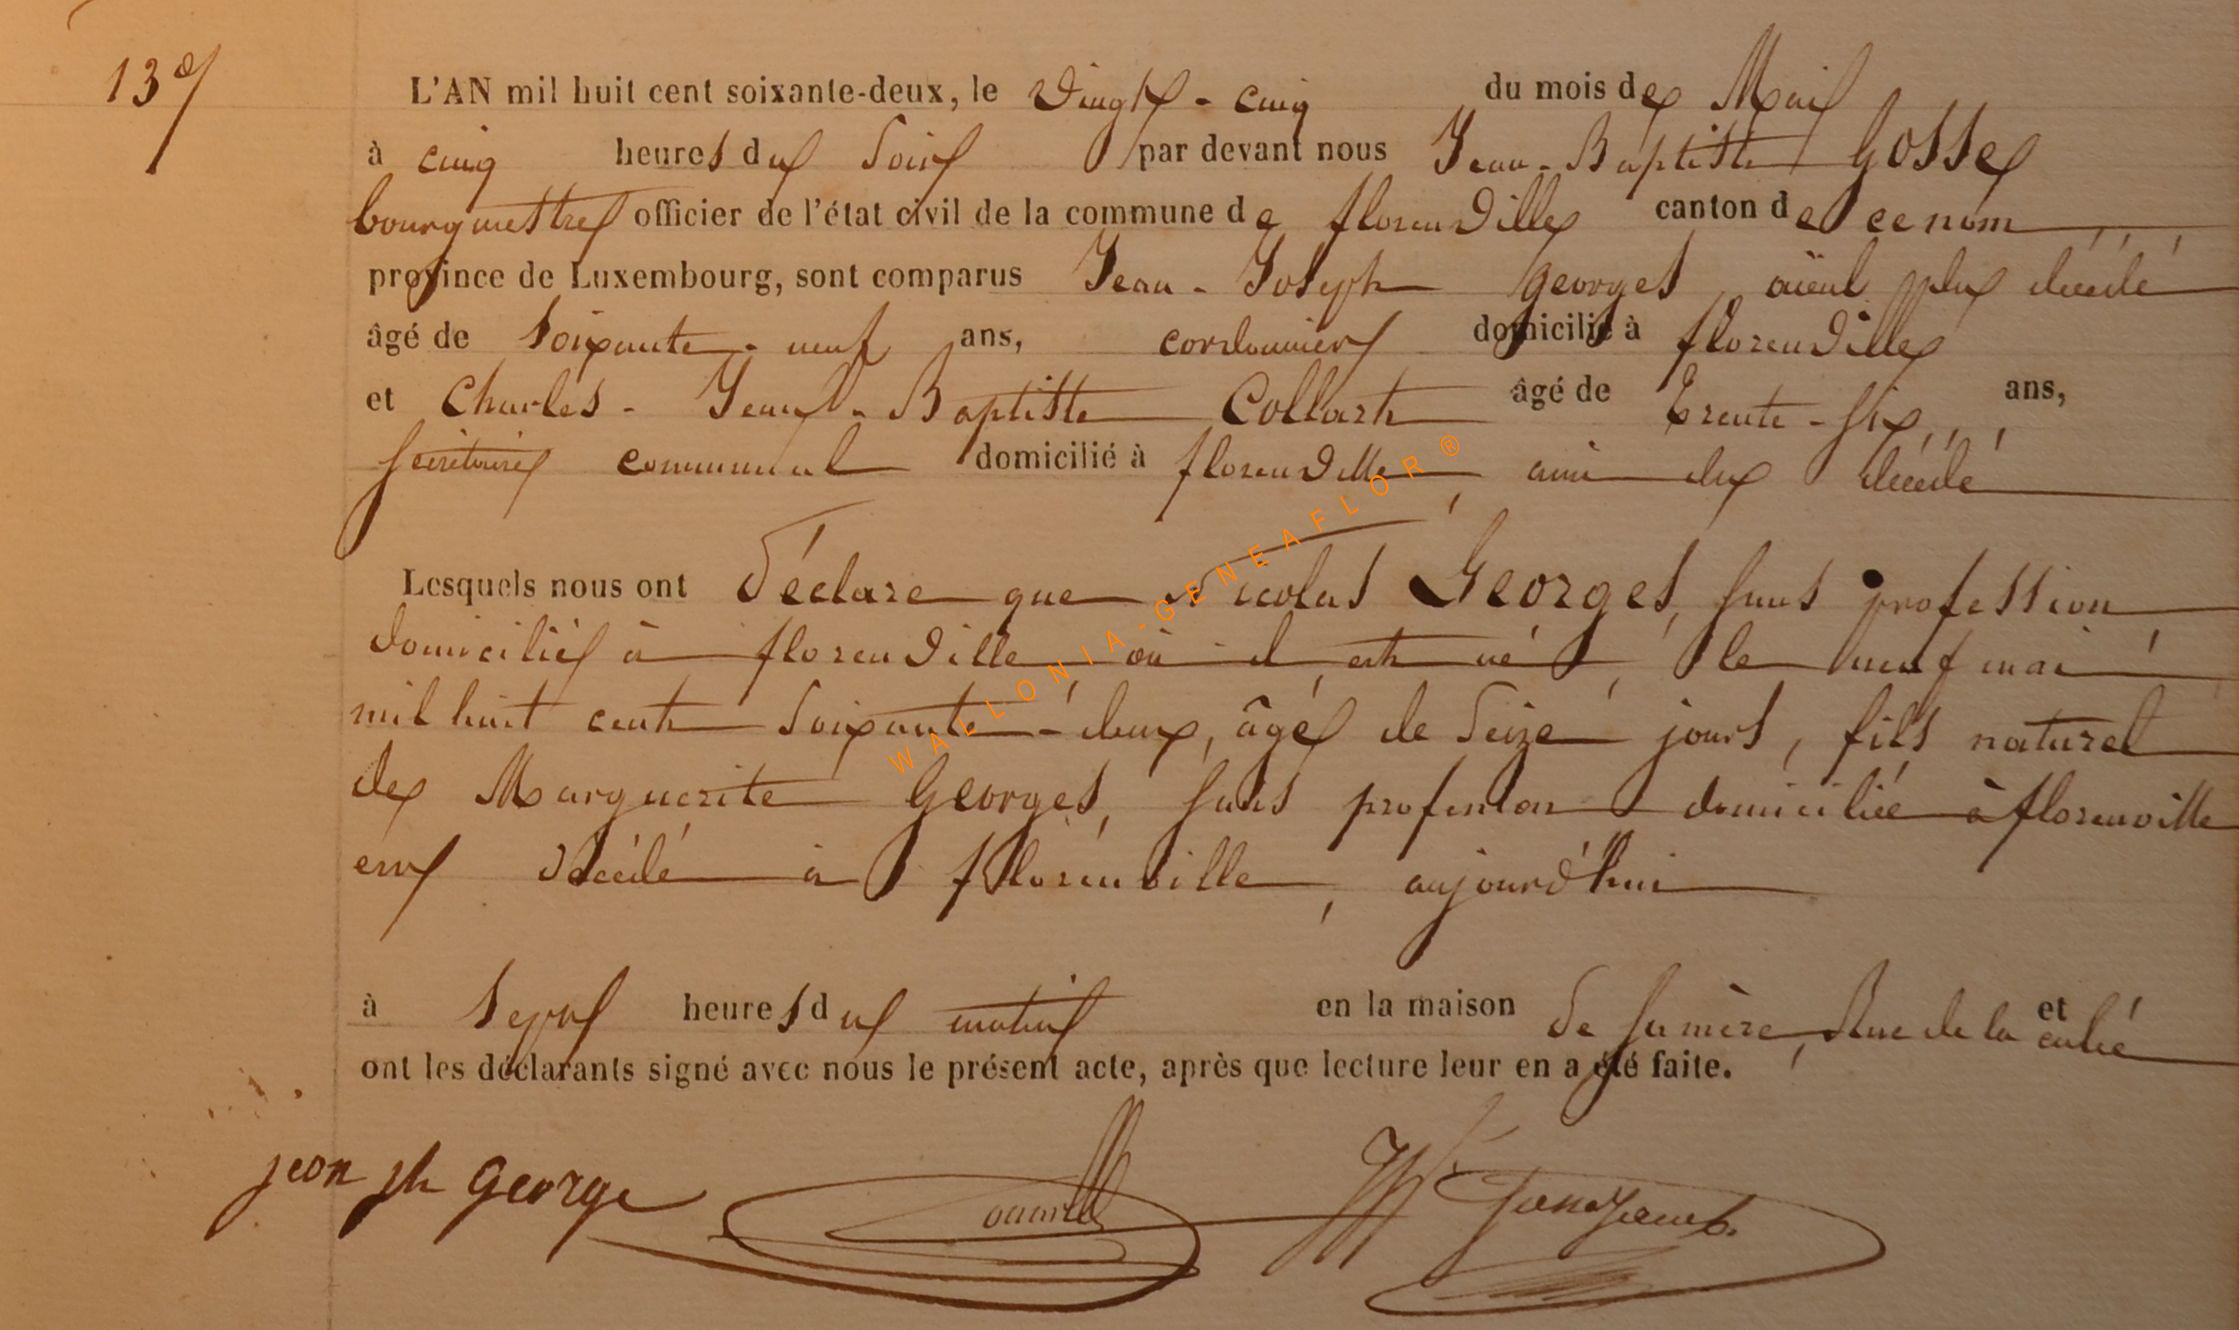 13e
L'AN mil huit cent soixante-deux, le vingt-cinq du mois de Mai
à cinq heures du soir par devant nous Jean-Baptiste Gosse
bourgmestre officier de l'état civil de la commune de florenville canton de ce nom
province de Luxembourg, sont comparus Jean-Joseph georges, aïeul du décédé
âgé de soixante-neuf ans, cordonnier domicilié à florenville
et Charles-Jean-Baptiste Collart âgé de trente-six ans,
secrétaire communal domicilié à florenville, ami du décédé
Lesquels nous ont déclaré que Nicolas Georges, sans profession
domicilié à florenville, où il est né, le neuf mai
mil huit cent soixante-deux, âgé de seize jours, fils naturel
de Marguerite Georges, sans profession domiciliée à florenville
est décédé à florenville, aujourd'hui
à sept heures du matin en la maison de sa mère, Rue de la et
ont les déclarants signé avec nous le présent acte, après que lecture leur en a été faite.
jean jh george
WALLONIA-GENEAFLOR®